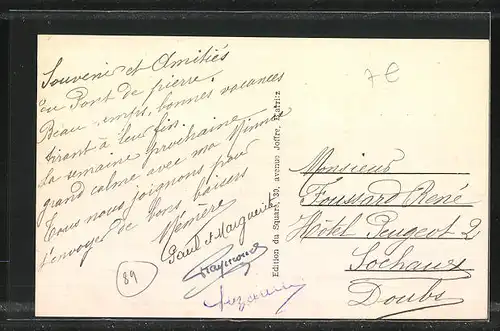 Souvenir et Amitiés
du Pont de pierre.
Beau temps, bonnes vacances
tirant à leur fin.
La semaine prochaine
grand calme avec ma Minouche
Tous nous joignons pour
t'envoyer de bons baisers
Mémère
Paul et Marguerite
Raymonde
Suzanne
89
Edition du Square, 30, avenue Joffre, Biarritz
7€
Monsieur
Foussard René
Hôtel Peugeot 2
Sochaux
Doubs